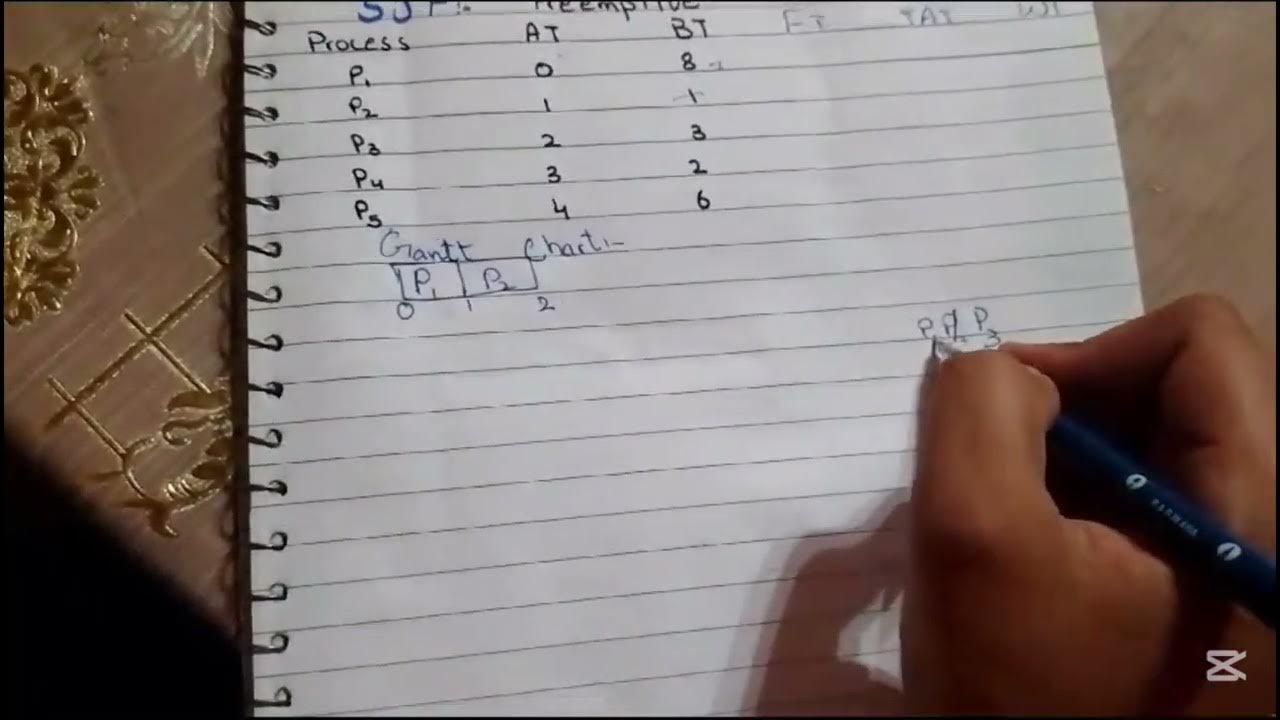 SJF:- Preemptive
Process AT BT FT TAT WT
P1 0 8
P2 1 1
P3 2 3
P4 3 2
P5 4 6
Gantt Chart:-
P1 P2
0 1 2
P1 P2 P3